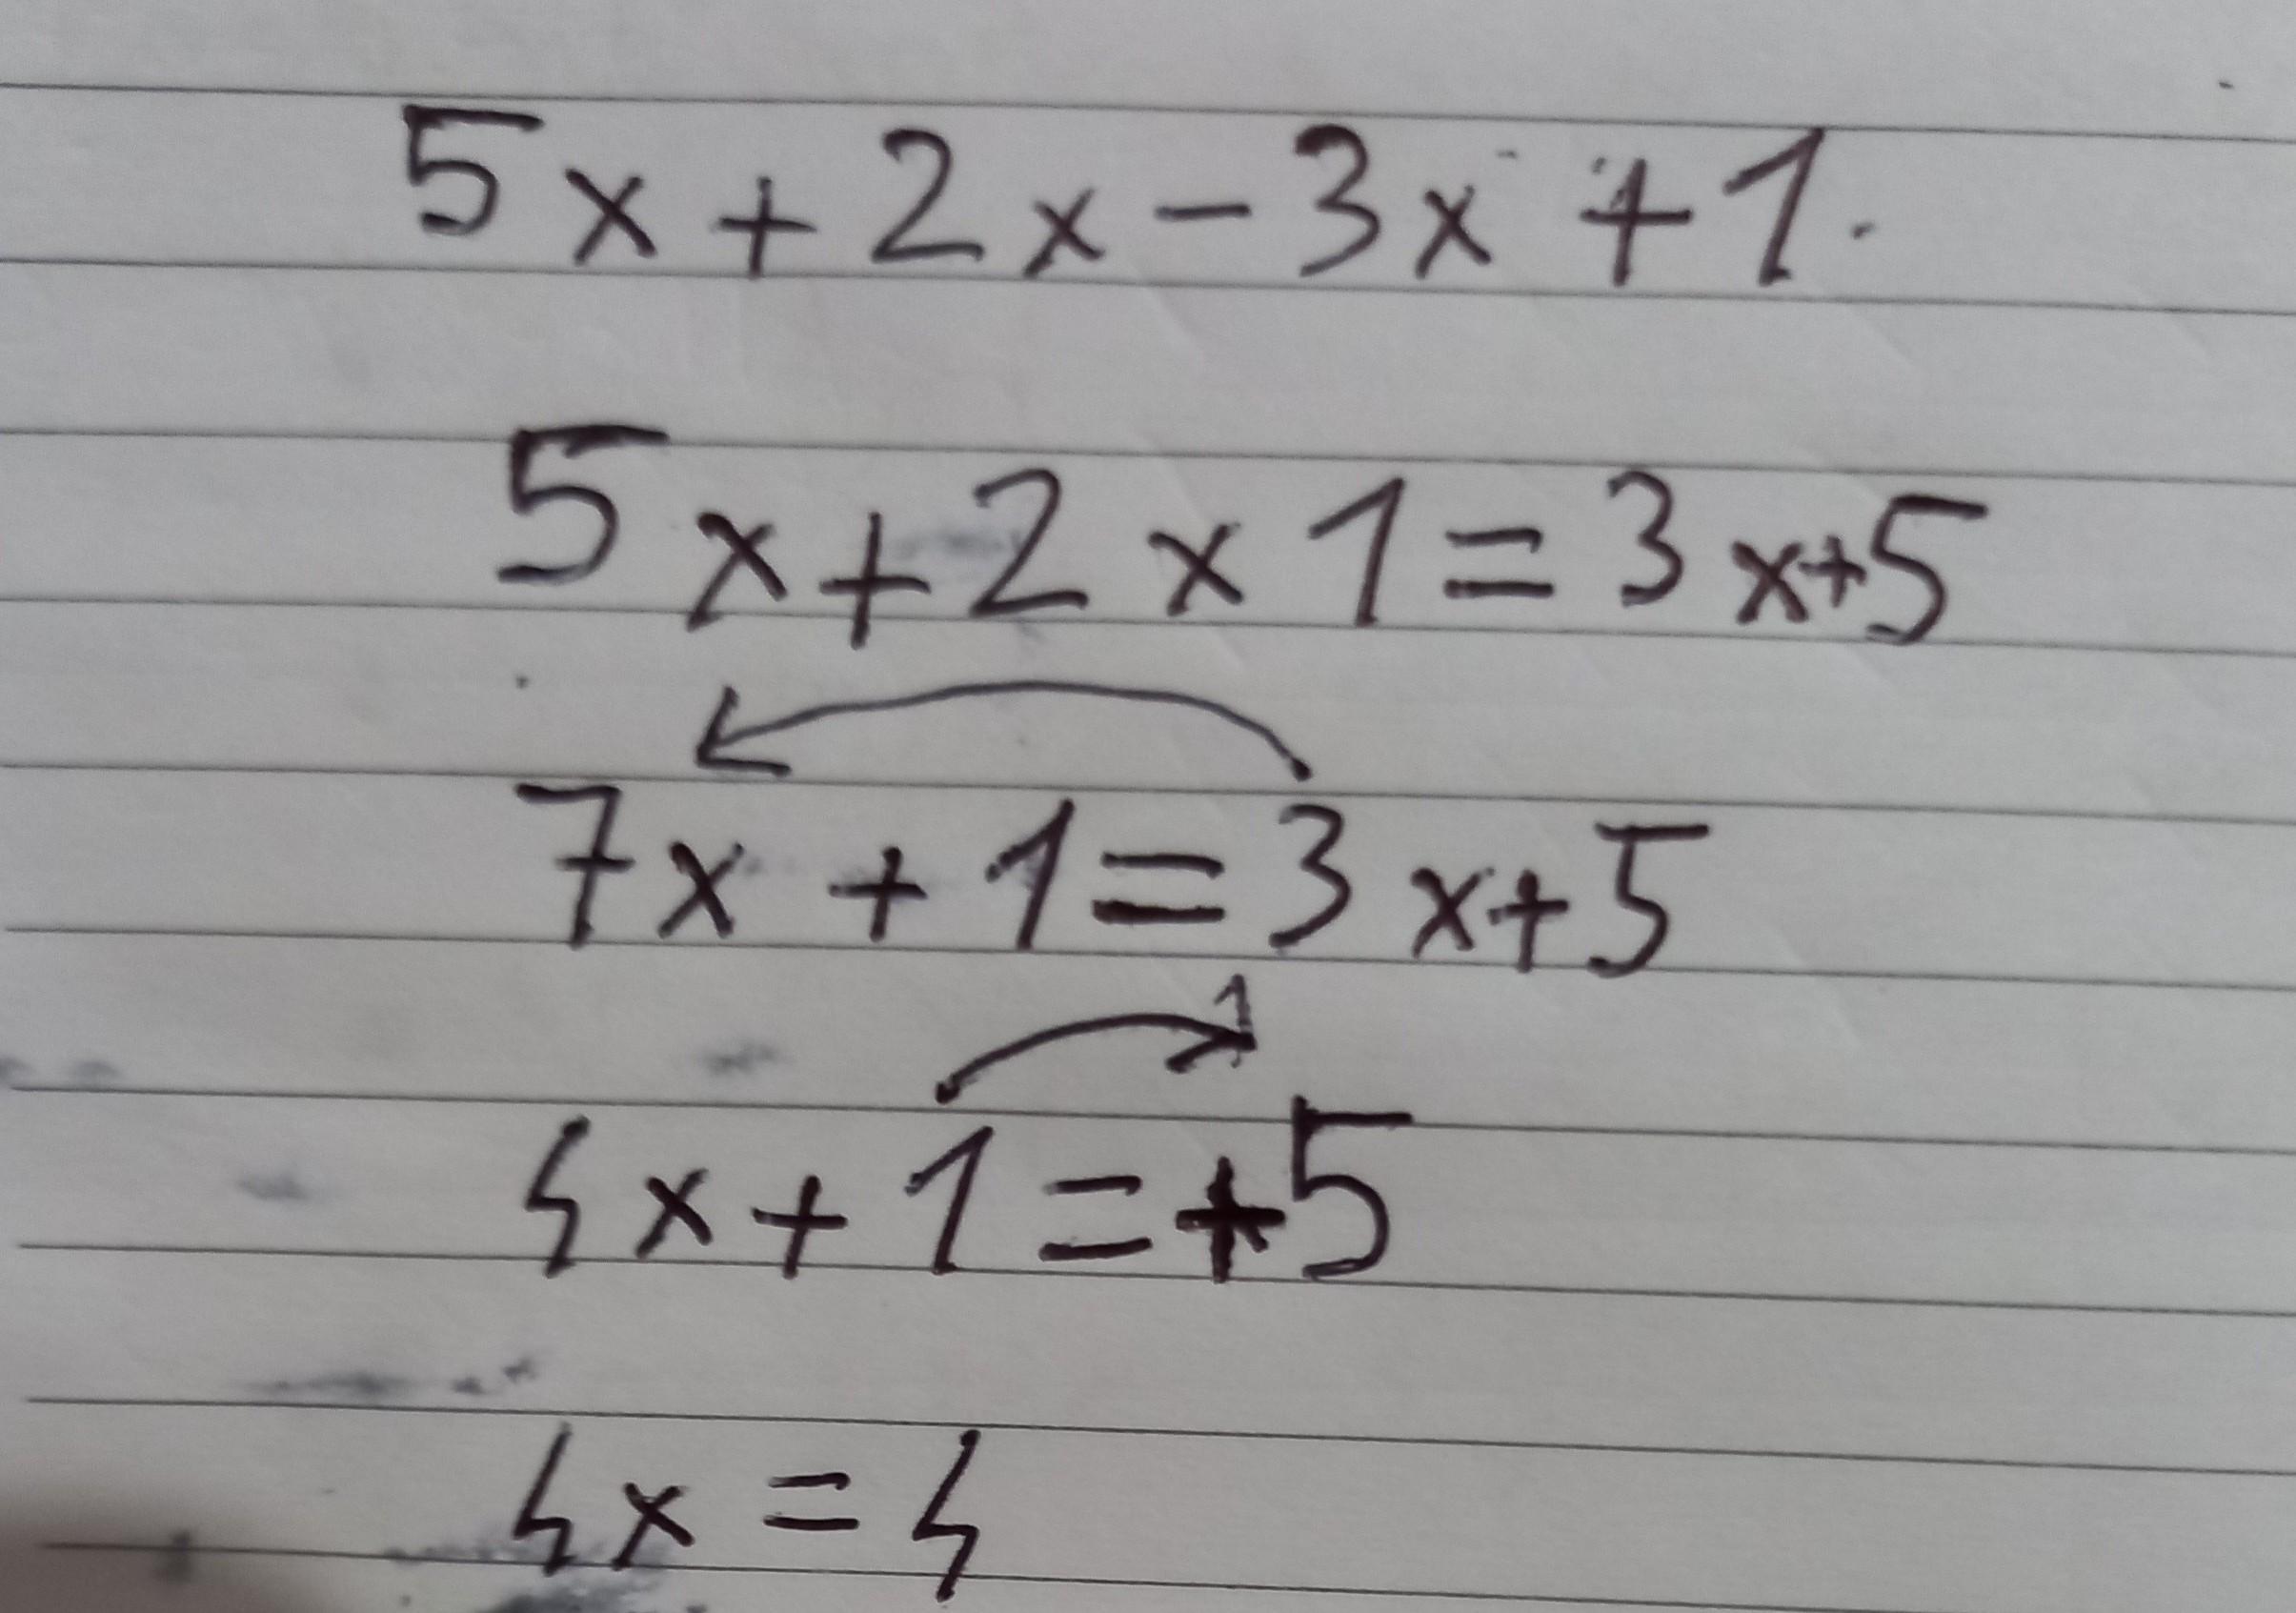 5x + 2x - 3x + 1.
5x + 2 x 1 = 3x + 5
7x + 1 = 3x + 5
4x + 1 = +5
4x = 4